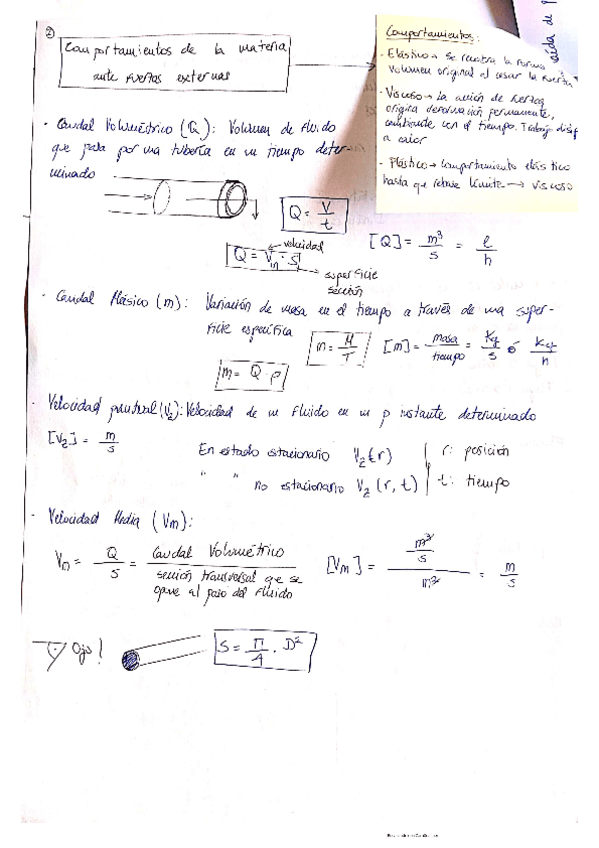 ②
Comportamientos de la materia
ante fuertas externas
Comportamientos:
- Elástico → Se recobra la forma
volumen original al cesar la fuerta
- Viscoso → la acción de fuertas
origina deformación permanente,
cambiante con el tiempo. Trabajo disip
a calor
- Plástico → comportamiento elástico
hasta que rebase límite → viscoso
aída de P
- Caudal Volumétrico (Q): Volumen de fluido
que pasa por una tubería en un tiempo deter-
minado
Q = V/t
Q = Vm · S
velocidad
superficie
sección
[Q] = m³/s = l/h
- Caudal Másico (m): Variación de masa en el tiempo a través de una super-
ficie específica
m = M/T
[m] = masa/tiempo = Kg/s ó Kg/h
m = Q · ρ
- Velocidad puntual (V₂): Velocidad de un fluido en un p instante determinado
[V₂] = m/s
En estado estacionario V₂(r) | r: posición
" " no estacionario V₂(r, t) | t: tiempo
- Velocidad Media (Vm):
Vm = Q/S = Caudal Volumétrico/sección transversal que se
opone al paso del fluido
[Vm] = m³/s / m² = m/s
Ojo!
S = π/4 · D²